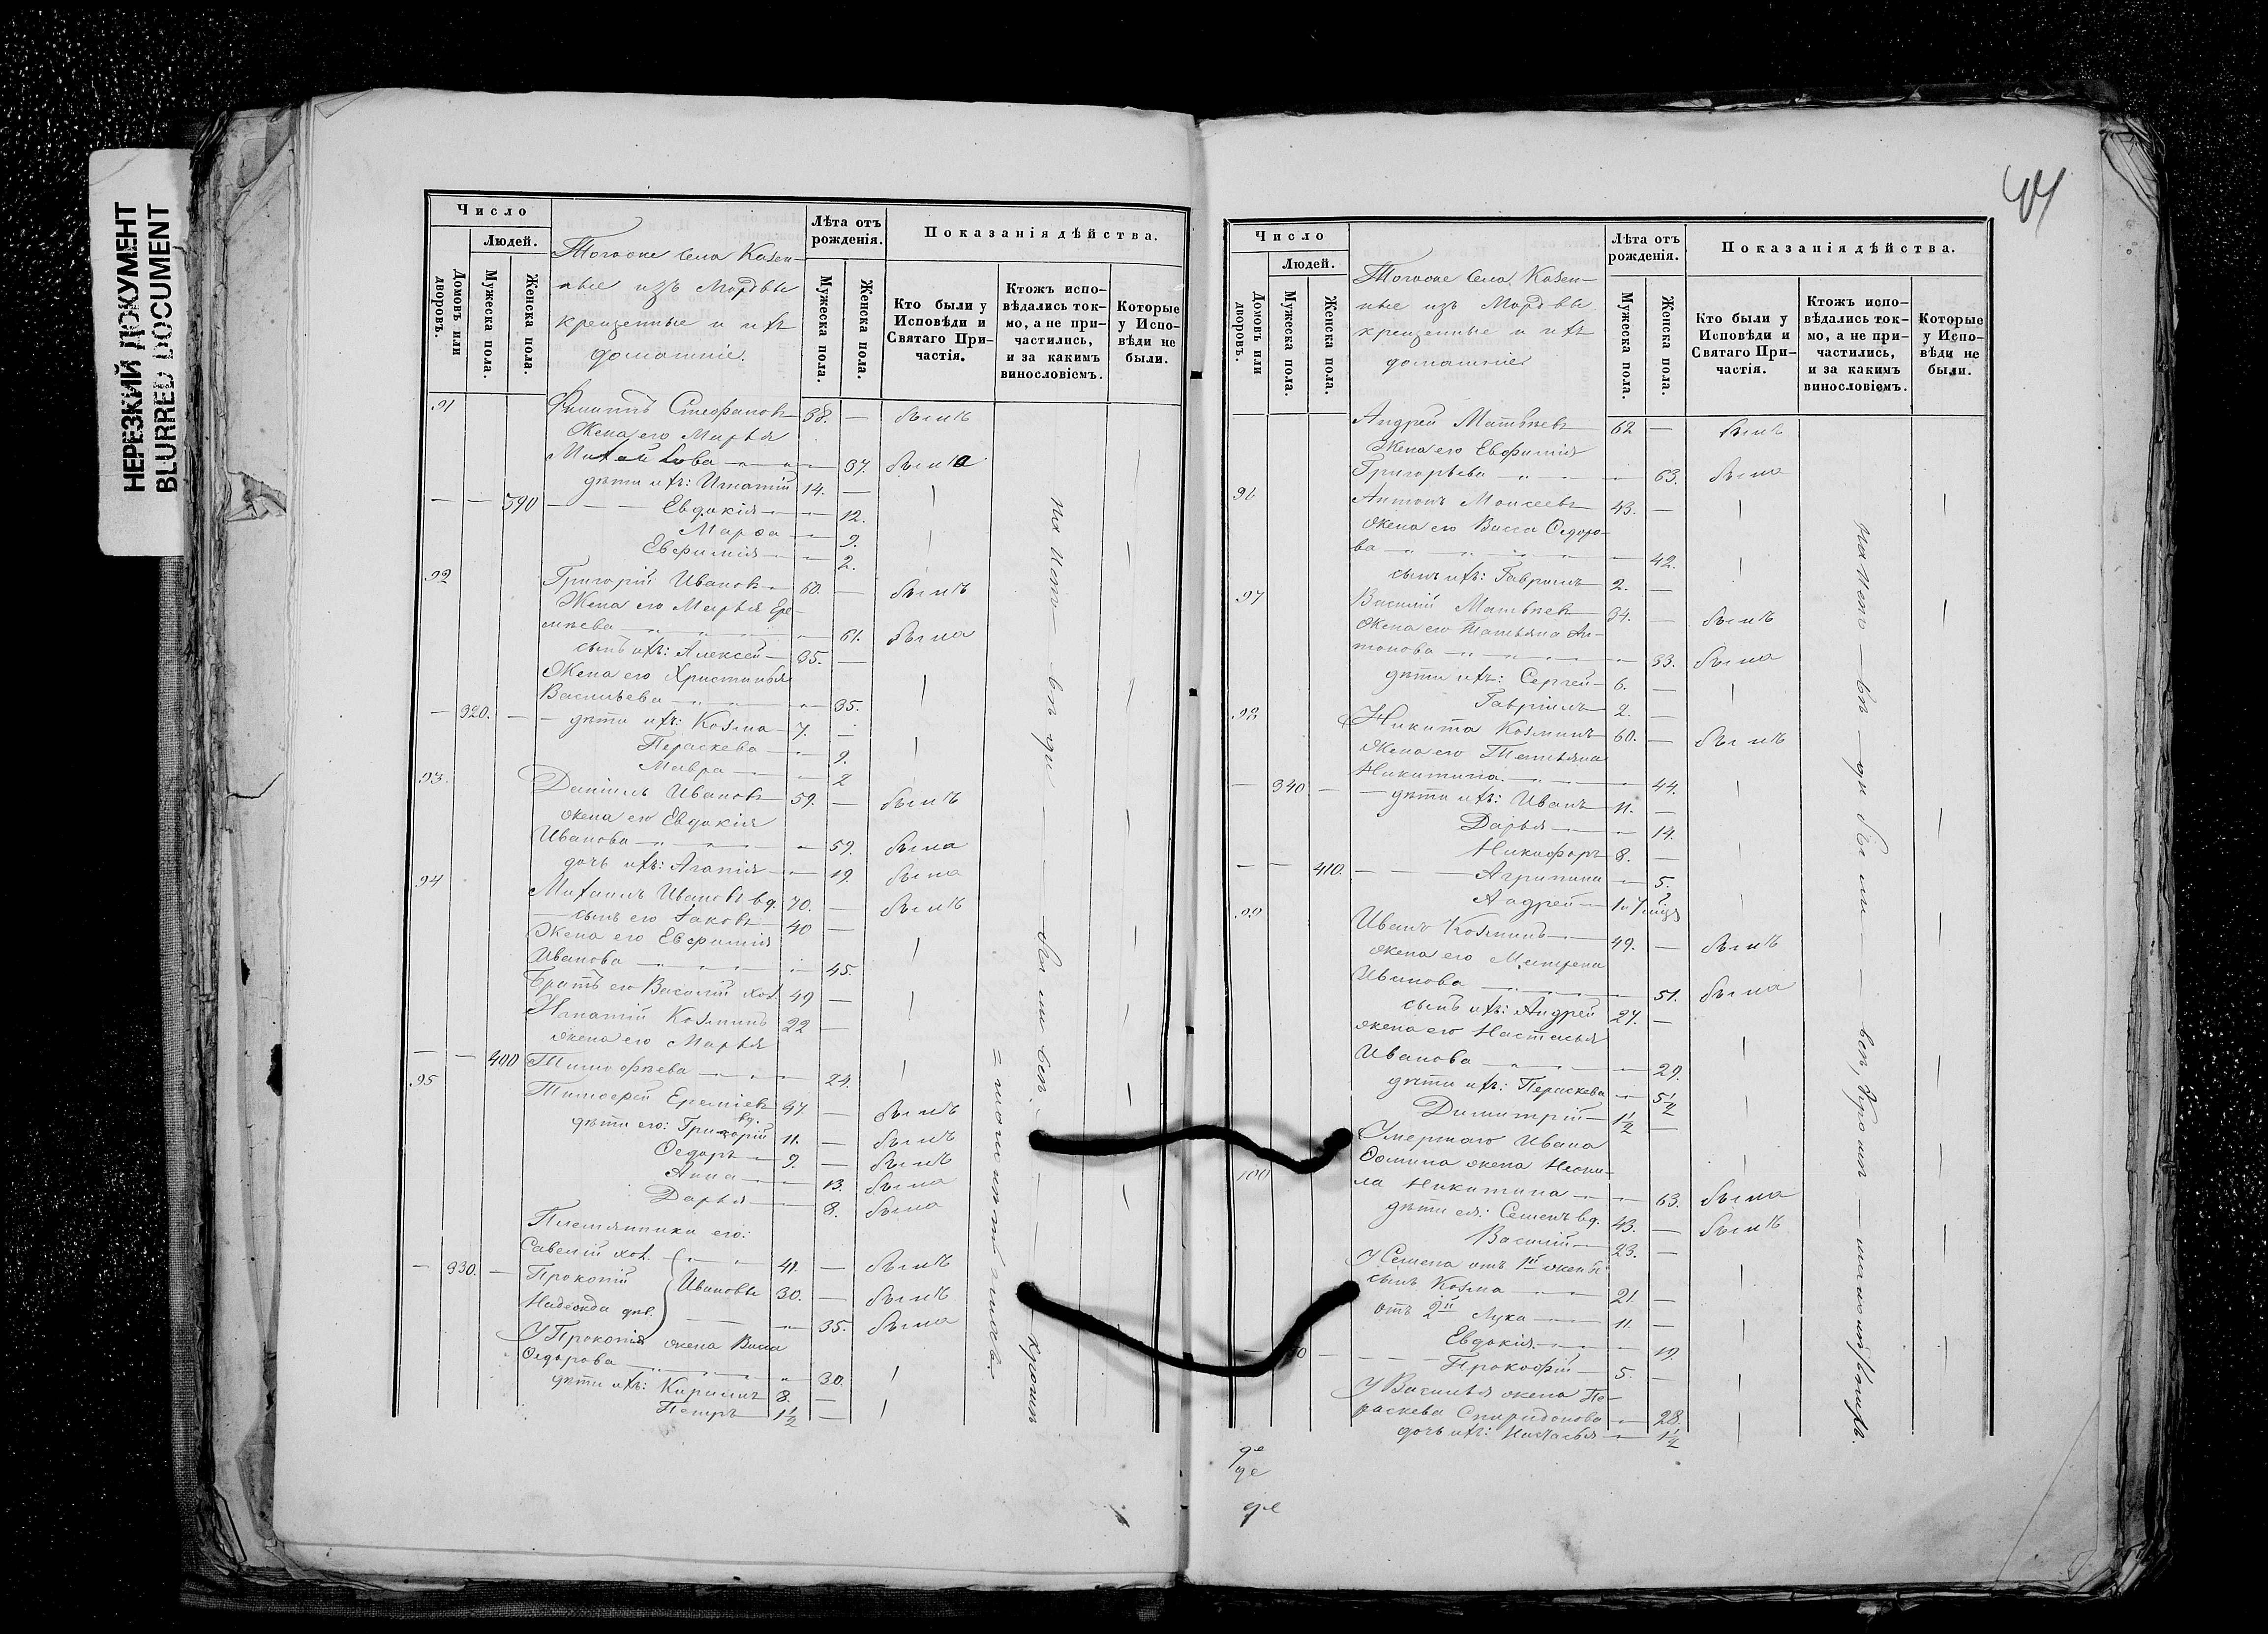 НЕРЕЗКИЙ ДОКУМЕНТ
BLURRED DOCUMENT
Число
Людей.
Домовъ или дворовъ.
Мужеска пола.
Женска пола.
Тогоже села Казен-
ные изъ Мордвы
крещенные и ихъ
домашніе.
Лѣта отъ рожденія.
Мужеска пола.
Женска пола.
Показанія дѣйства.
Кто были у Исповѣди и Святаго При-частія.
Ктожъ испо-вѣдались ток-мо, а не при-частились, и за какимъ винословіемъ.
Которые у Испо-вѣди не были.
91 Филиппъ Стефановъ 38. — былъ
Жена его Марья
Михайлова — 37. была
дѣти ихъ: Игнатій 14. —
— — 390 — Евдокія — 12.
Марѳа — 9.
Евфимія — 2.
92 Григорій Ивановъ 60. — былъ
Жена его Марья Ере-
мѣева — 61. была
сынъ ихъ: Алексей 35. —
Жена его Христинья
Васильева — 35.
— 320. — дѣти ихъ: Козма 7. —
Пераскева — 9.
Мавра — 2
93. Даніилъ Ивановъ 59. — былъ
жена его Евдокія
Иванова — 59. была
дочь ихъ: Агапія — 19. была
94 Михаилъ Ивановъ вд. 70. — былъ
сынъ его Іаковъ 40 —
Жена его Евфимія
Иванова — 45.
Братъ его Василій хол. 49 —
Игнатій Козминъ 22 —
жена его Марья
— — 400 Тимофѣева — 24.
95 Тимофей Ереміевъ вд. 47 — былъ
дѣти его: Григорій 11. — былъ
Ѳедоръ 9. — былъ
Анна — 13. была
Дарья — 8. была
Племянники его:
Савелій хол. 41. — былъ
— 330. — Прокопій Ивановы 30. — былъ
Надежда дѣв. — 35. была
У Прокопія жена Васса
Ѳедорова — 30.
дѣти ихъ: Кирилъ 8. —
Петръ 1½ —
Число
Людей.
Домовъ или дворовъ.
Мужеска пола.
Женска пола.
Тогоже Села Казен-
ные изъ Мордвы
крещенные и ихъ
домашніе
Лѣта отъ рожденія.
Мужеска пола.
Женска пола.
Показанія дѣйства.
Кто были у Исповѣди и Святаго При-частія.
Ктожъ испо-вѣдались ток-мо, а не при-частились, и за какимъ винословіемъ.
Которые у Испо-вѣди не были.
Андрей Матвѣевъ 62 — былъ
Жена его Евфимія
Григорьева — 63. была
96 Антонъ Моисеевъ 43. —
Жена его Васса Ѳедоро-
ва — 42.
сынъ ихъ: Гавріилъ 2. —
97 Василій Матвѣевъ 34. — былъ
Жена его Татьяна Ан-
тонова — 33. была
дѣти ихъ: Сергей 6. —
Гавріилъ 2. —
98 Никита Козминъ 60. — былъ
Жена его Татьяна
Никитина — 44.
— 340 — дѣти ихъ: Иванъ 11. —
Дарья — 14.
Никифоръ 8. —
— — 410. — Агрипина — 5.
Андрей 1 и 7 мѣся
99 Иванъ Козминъ 49. — былъ
жена его Матрена
Иванова — 51. была
сынъ ихъ: Андрей 27. —
жена его Настасья
Иванова — 29.
дѣти ихъ: Пераскева — 5½
Димитрій 1½ —
Умершаго Ивана
Ѳомина жена Неони-
100 ла Никитина — 63. была
дѣти ея: Семенъ вд. 43. — былъ
Василій 23. —
У Семена отъ 1й жены
сынъ Козма 21 —
отъ 2й Лука 11. —
Евдокія — 19.
Прокофій 5. —
У Василья жена Пе-
раскева Спиридонова — 28.
дочь ихъ: Настасья — 1½
де
де
де